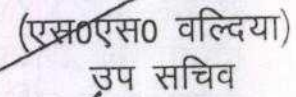 (एस0एस0 वल्दिया)
उप सचिव